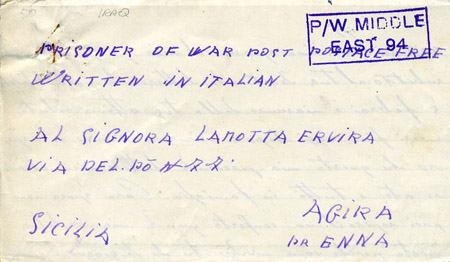 IRAQ
P/W MIDDLE
EAST 94
PRISONER OF WAR POST POSTAGE FREE
WRITTEN IN ITALIAN
AL SIGNORA LAMOTTA ERVIRA
VIA DEL. PÒ N 77.
AGIRA
SICILIA
PR ENNA